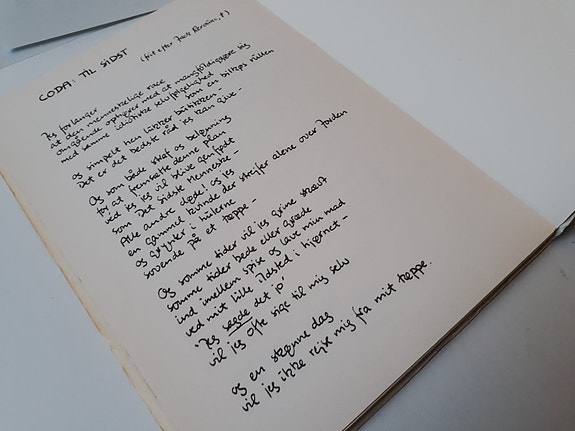 CODA: TIL SIDST
(frit efter
Jeg forlanger
at den menneskelige race
omgående ophører med at mangfoldiggøre sig
med samme idiotiske selvfølgelighed
som en biltyps rullen
og simpelt hen lukker butikken -
Det er det bedste råd jeg kan give -
Og som både straf og belønning
for at fremsætte denne plan
ved jeg jeg vil blive genfødt
som Det Sidste Menneske -
Alle andre døde! og jeg
en gammel kvinde der strejfer alene over Jorden
og grynter i hulerne
sovende på et tæppe -
Og somme tider vil jeg grine stærkt
somme tider bede eller græde
ind imellem spise og lave min mad
ved mit lille ildsted i hjørnet -
"Jeg sagde det jo"
vil jeg ofte sige til mig selv
og en skønne dag
vil jeg ikke rejse mig fra mit tæppe.